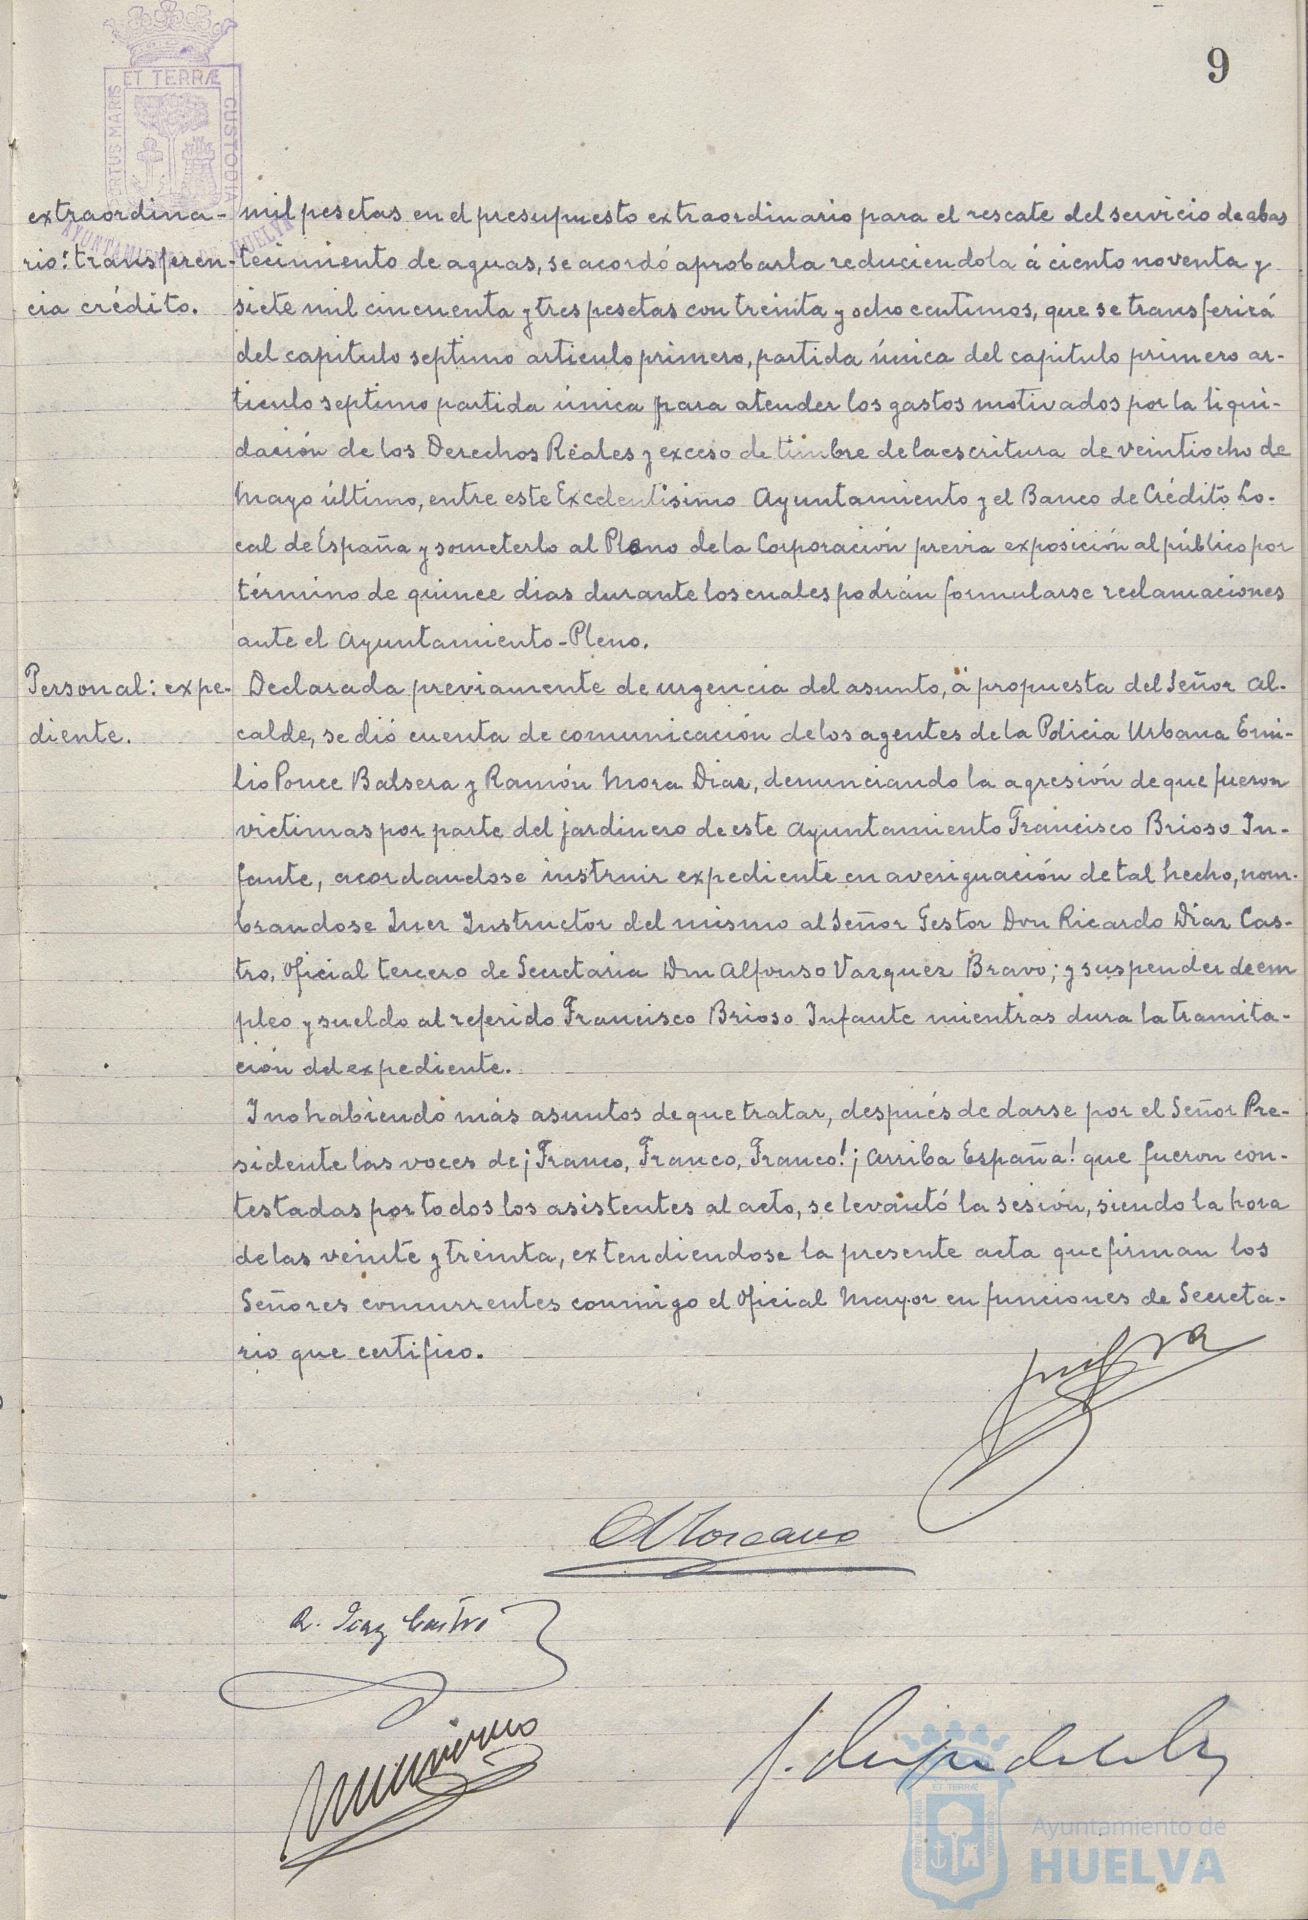 9
PORTUS MARIS ET TERRÆ CUSTODIA
AYUNTAMIENTO DE HUELVA
extraordina-
rio: transferen-
cia crédito.
mil pesetas en el presupuesto extraordinario para el rescate del servicio de abas
tecimiento de aguas, se acordó aprobarla reduciendola á ciento noventa y
siete mil cincuenta y tres pesetas con treinta y ocho centimos, que se transferirá
del capitulo septimo articulo primero, partida única del capitulo primero ar-
ticulo septimo partida única para atender los gastos motivados por la liqui-
dación de los Derechos Reales y exceso de timbre de la escritura de veintiocho de
Mayo último, entre este Excelentisimo Ayuntamiento y el Banco de Crédito Lo-
cal de España y someterlo al Pleno de la Corporación previa exposición al público por
término de quince dias durante los cuales podrán formularse reclamaciones
ante el Ayuntamiento-Pleno.
Personal: expe-
diente.
Declarada previamente de urgencia del asunto, á propuesta del Señor Al-
calde, se dió cuenta de comunicación de los agentes de la Policia Urbana Emi-
lio Ponce Balsera y Ramón Mora Diaz, denunciando la agresión de que fueron
victimas por parte del jardinero de este Ayuntamiento Francisco Brioso In-
fante, acordandose instruir expediente en averiguación de tal hecho, nom-
brandose Juez Instructor del mismo al Señor Gestor Don Ricardo Diaz Cas-
tro, Oficial tercero de Secretaria Don Alfonso Vazquez Bravo; y suspender de em
pleo y sueldo al referido Francisco Brioso Infante mientras dura la tramita-
ción del expediente.
Y no habiendo más asuntos de que tratar, después de darse por el Señor Pre-
sidente las voces de ¡Franco, Franco, Franco! ¡Arriba España! que fueron con-
testadas por todos los asistentes al acto, se levantó la sesión, siendo la hora
de las veinte y treinta, extendiendose la presente acta que firman los
Señores concurrentes conmigo el Oficial Mayor en funciones de Secreta-
rio que certifico.
R. Diaz Castro
PORTUS MARIS ET TERRÆ CUSTODIA
Ayuntamiento de
HUELVA